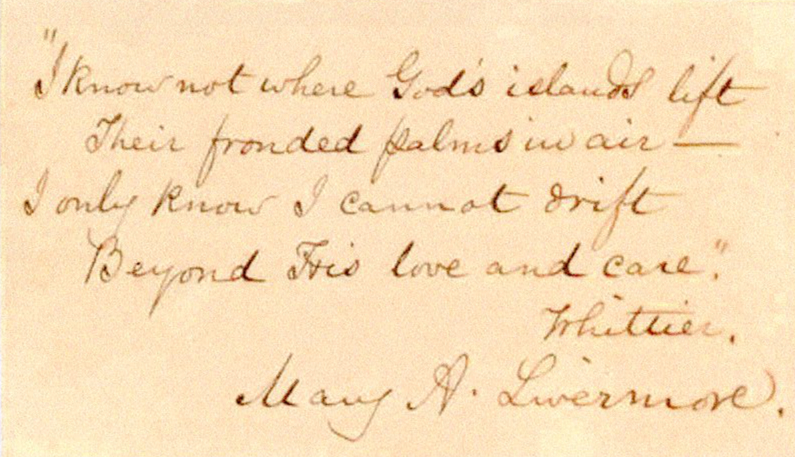 "I know not where God's islands lift
Their fronded palms in air —
I only know I cannot drift
Beyond His love and care."
Whittier.
Mary A. Livermore.